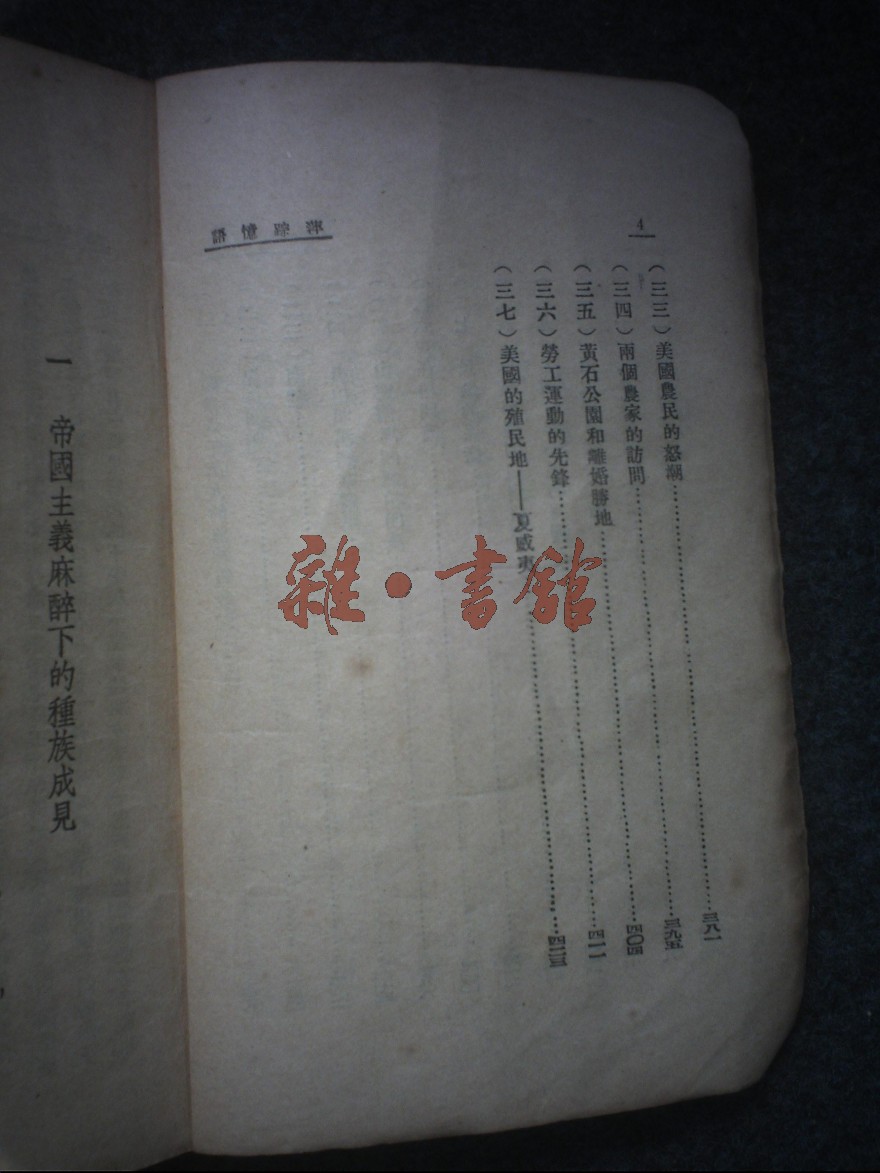 4
萍踪憶語
（三三）美國農民的怒潮……三八一
（三四）兩個農家的訪問……三九五
（三五）黃石公園和離婚勝地……四〇四
（三六）勞工運動的先鋒……四一一
（三七）美國的殖民地——夏威夷……四二三
一　帝國主義麻醉下的種族成見
雜·書館